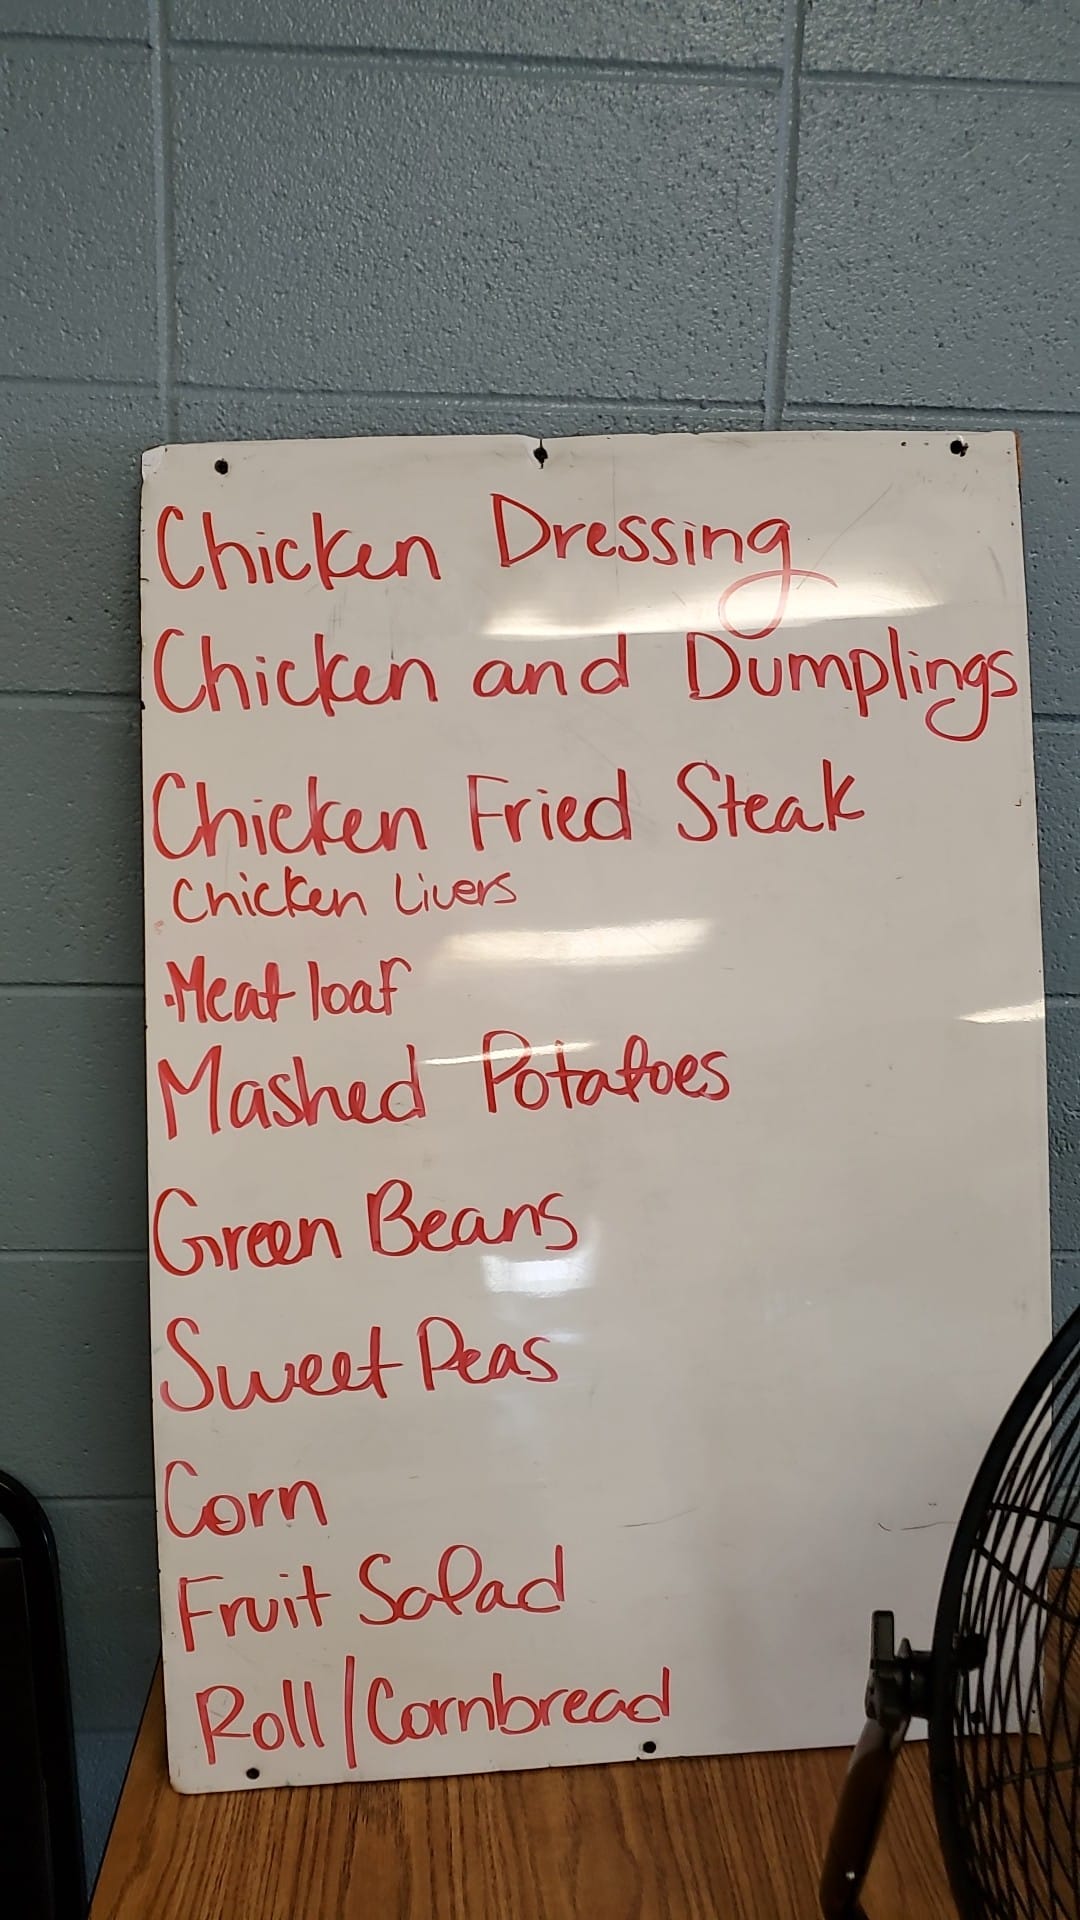 Chicken Dressing
Chicken and Dumplings
Chicken Fried Steak
Chicken Livers
Meat loaf
Mashed Potatoes
Green Beans
Sweet Peas
Corn
Fruit Salad
Roll/Cornbread